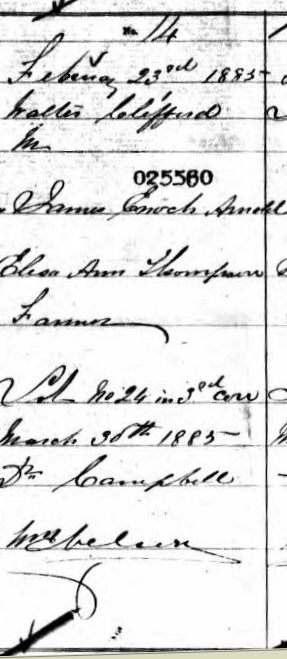 No. 14
Febuary 23rd 1885
Walter Clifford
M
025560
James Enoch Arnold
Elisa Ann Thompson
Farmer
Lot No 24 in 3rd con
March 30th 1885
Dr Campbell